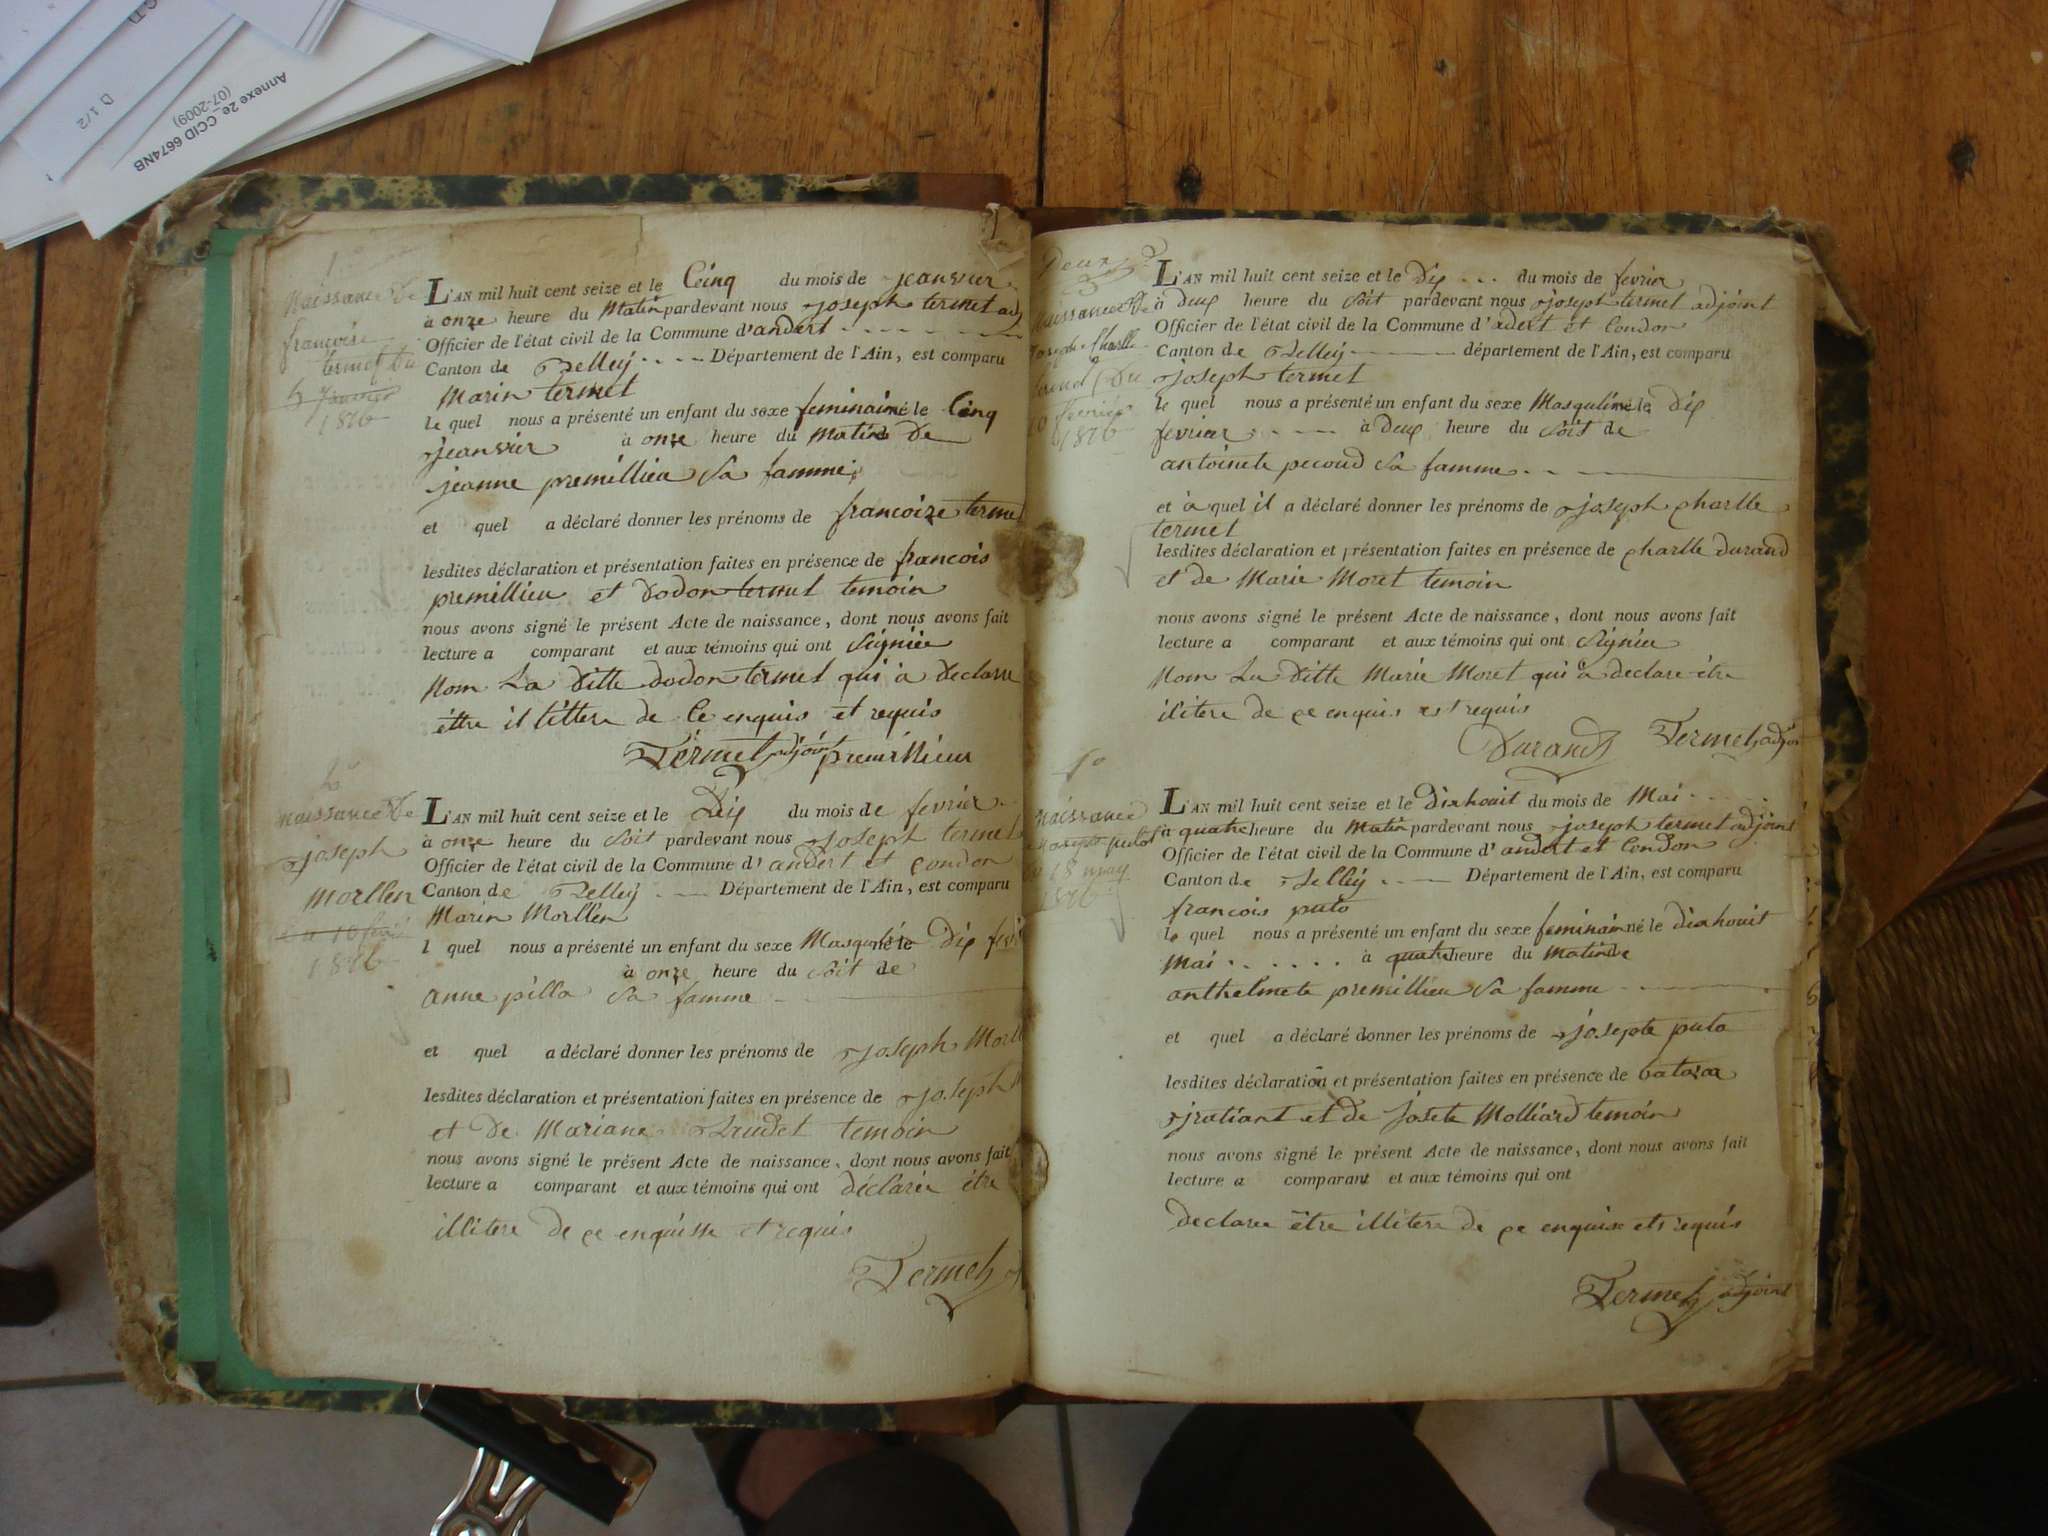 Annexe 2e_CCID 6674NB
(07-2009)
D 1/2
1
naissance de
francoise
termet du
5 Janvier
1816
L'AN mil huit cent seize et le Cinq du mois de jeanvier
à onze heure du Matin pardevant nous joseph termet adj
Officier de l'état civil de la Commune d'andert
Canton de Belley Département de l'Ain, est comparu
Marin termet
le quel nous a présenté un enfant du sexe feminain né le Cinq
jeanvier à onze heure du Matin de
jeanne premillieu Sa famme
et quel a déclaré donner les prénoms de francoize terme
lesdites déclaration et présentation faites en présence de francois
premillieu et dodon termet temoin
nous avons signé le présent Acte de naissance, dont nous avons fait
lecture a comparant et aux témoins qui ont Signiée
Nom La ditte dodon termet qui à declarre
éttre illittere de Ce enquis et requis
Termet adjoint premillieux
naissance de
joseph
morllen
du 10
1816
L'AN mil huit cent seize et le Dix du mois de fevrier
à onze heure du Soit pardevant nous joseph termet
Officier de l'état civil de la Commune d'andert et condon
Canton de Belley Département de l'Ain, est comparu
Marin Morllen
l quel nous a présenté un enfant du sexe Masqulin né le Dix fevr
à onze heure du Soit de
anne pilla Sa famme
et quel a déclaré donner les prénoms de joseph Morll
lesdites déclaration et présentation faites en présence de joseph
et de Mariane temoin
nous avons signé le présent Acte de naissance, dont nous avons fait
lecture a comparant et aux témoins qui ont déclarée étre
illitere de ce enquisse et requis
Termet
Deux
3
naissance de
joseph Charlle
termet du
10 fevrier
1816
L'AN mil huit cent seize et le Dix du mois de fevrier
à Deux heure du Soit pardevant nous joseph termet adjoint
Officier de l'état civil de la Commune d'adert et Condon
Canton de Belley département de l'Ain, est comparu
joseph termet
le quel nous a présenté un enfant du sexe Masqulin né le Dix
fevrier à Deux heure du Soit de
antoinete pecoud Sa famme
et à quel il a déclaré donner les prénoms de joseph Charlle
termet
lesdites déclaration et présentation faites en présence de Charlle durand
et de Marie Moret temoin
nous avons signé le présent Acte de naissance, dont nous avons fait
lecture a comparant et aux témoins qui ont Signiée
Nom La ditte Marie Moret qui à declare étre
ilitere de ce enquis est requis
Durand Termet adjoi
naissance
josepte putot
18 may
1816
L'AN mil huit cent seize et le diahouit du mois de Mai
à quatre heure du Matin pardevant nous joseph termet adjoint
Officier de l'état civil de la Commune d'andert et Condon
Canton de Belley Département de l'Ain, est comparu
francois puto
le quel nous a présenté un enfant du sexe feminain né le diahouit
Mai à quatre heure du Matin de
anthelmete premillieu Sa famme
et quel a déclaré donner les prénoms de josepte puto
lesdites déclaration et présentation faites en présence de
et de josete Molliard temoin
nous avons signé le présent Acte de naissance, dont nous avons fait
lecture a comparant et aux témoins qui ont
declaree être illitere de ce enquise ets requis
Termet adjoint